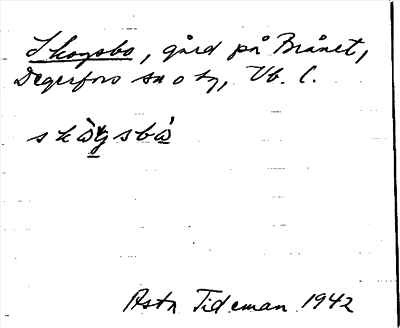 Skogsbo, gård på Brånet,
Degerfors sn o tg, Vb. l.
skò̱gsbò̱
Astr Tideman 1942